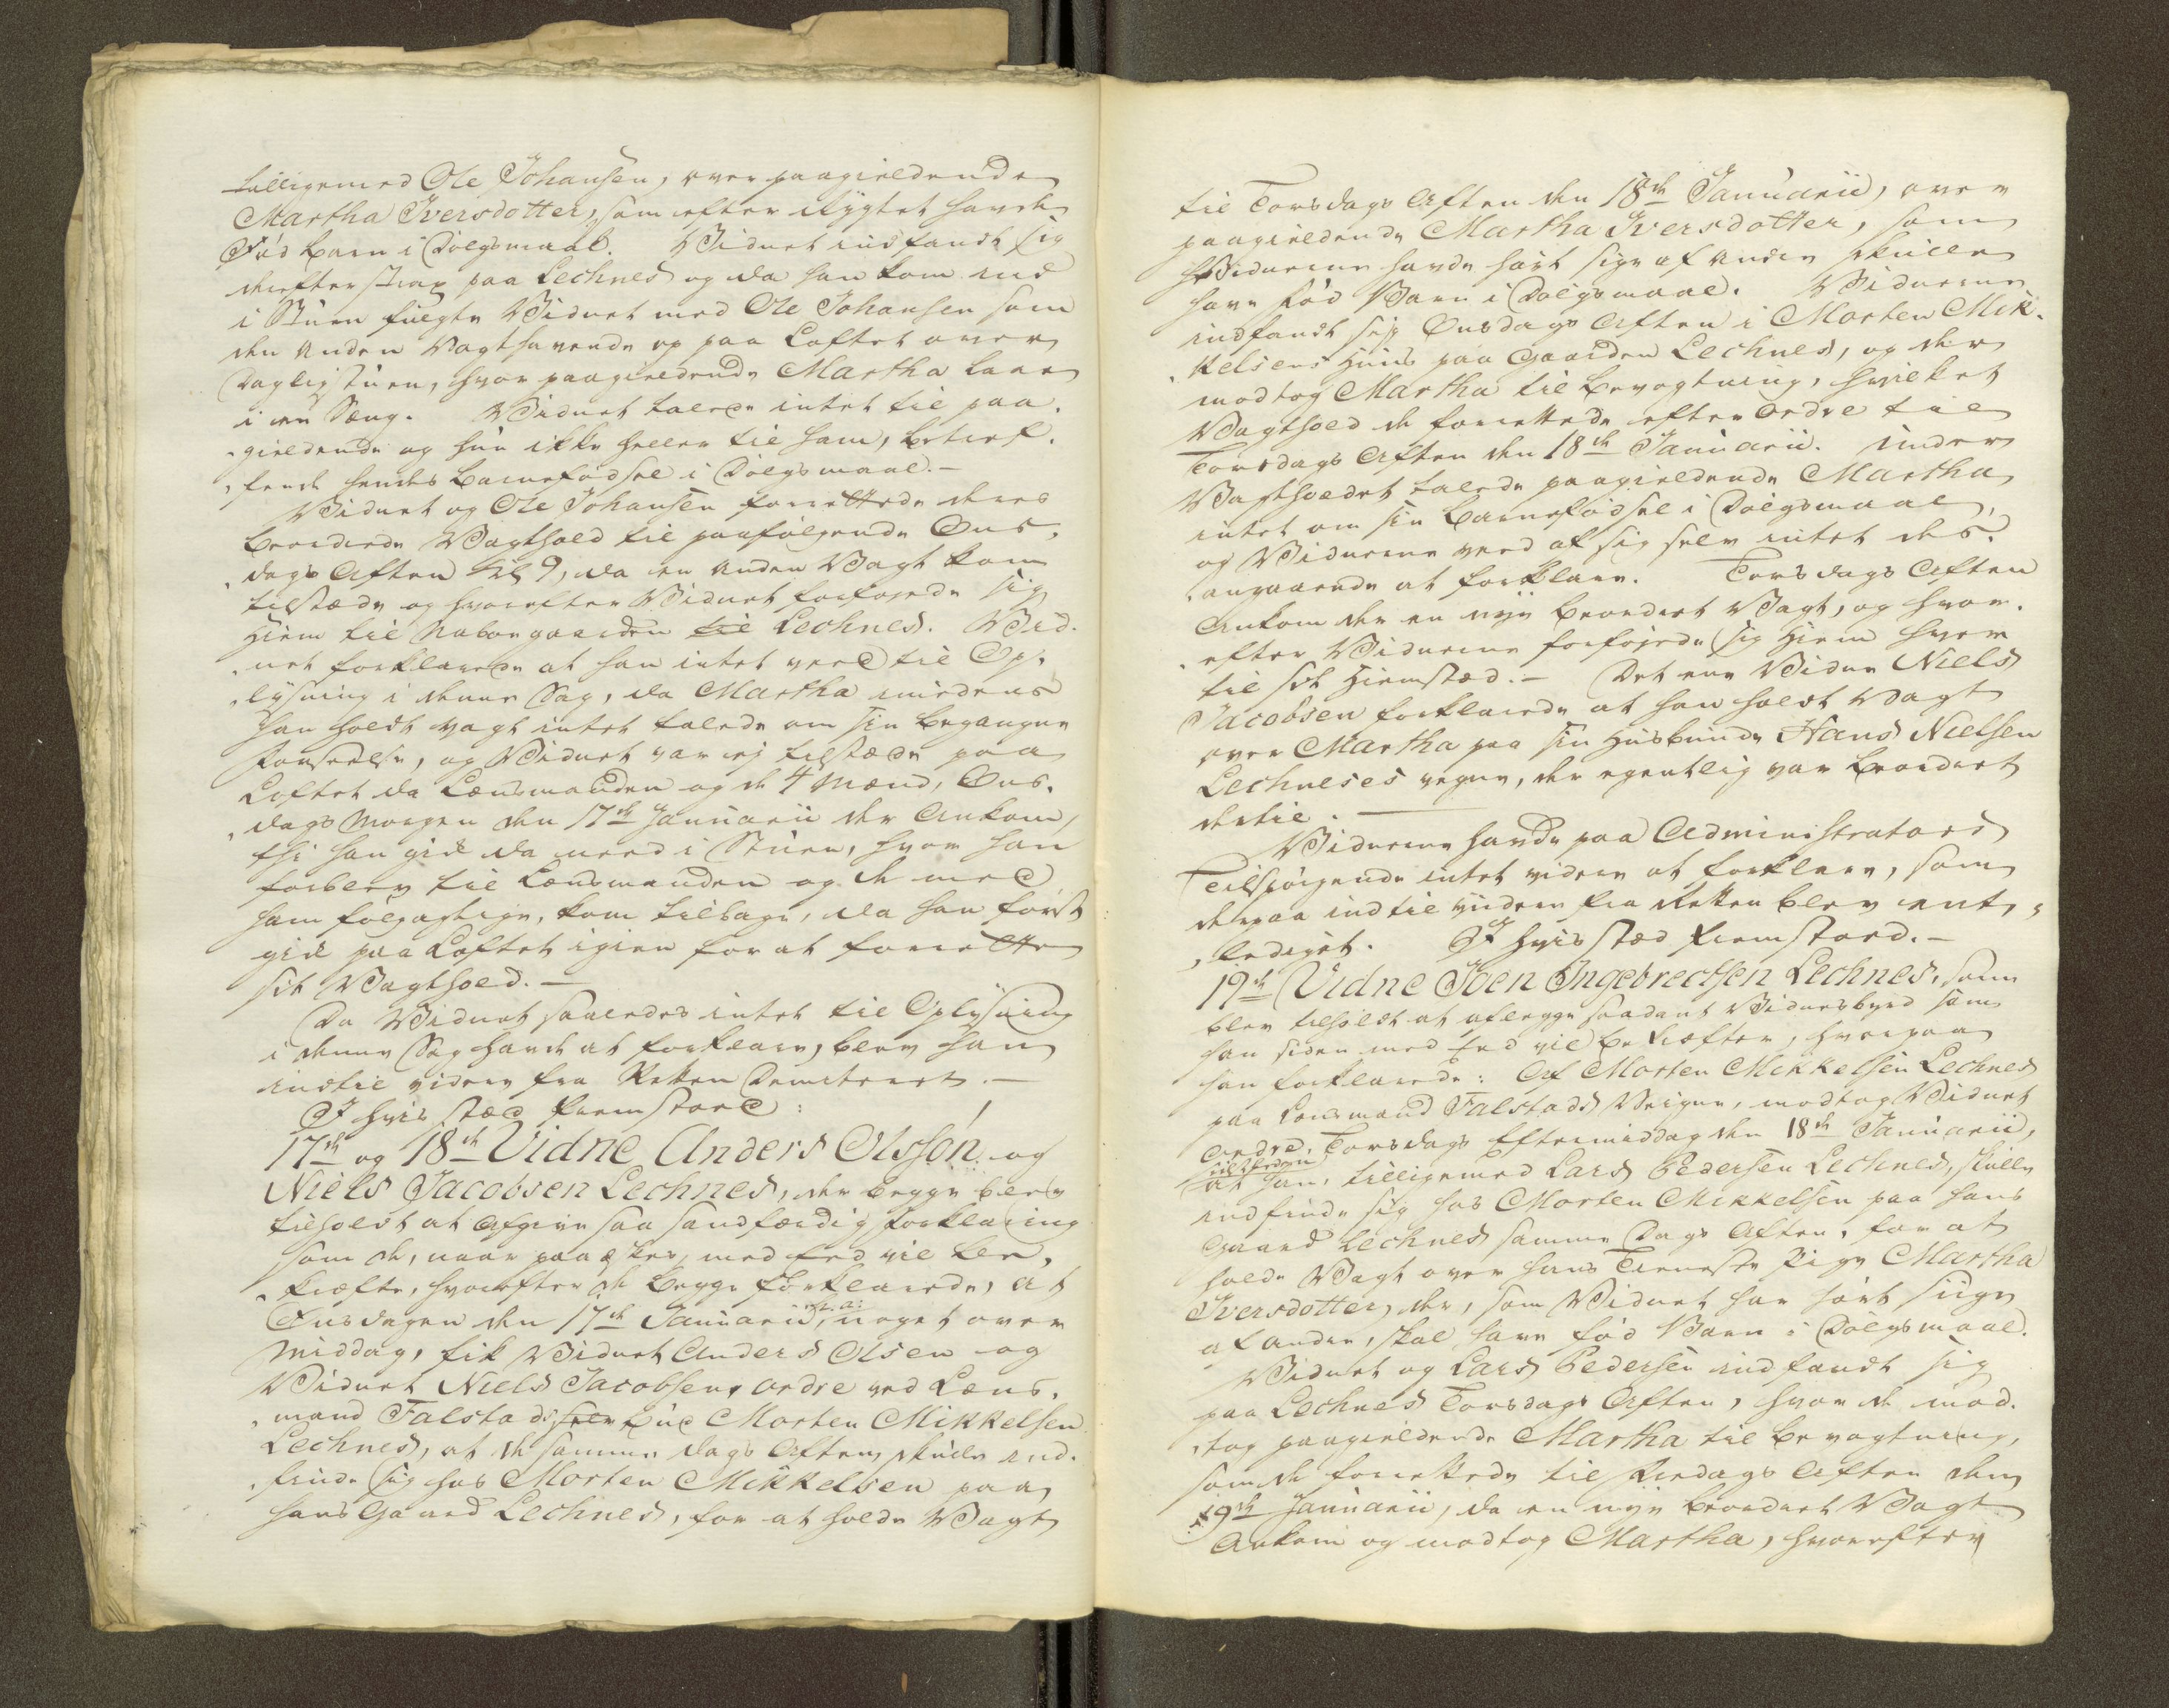 tilligemed Ole Johansen, over paagieldende
Martha Iversdotter, som efter Rygtet havde
Fød Barn i Dølgsmaal. Vidnet indfandt sig
derefter strax paa Lechnes og da han kom ind
i Stuen fulgte Vidnet med Ole Johansen som
den anden Vagthavende op paa Loftet over
Daglig Stuen, hvor paagieldende Martha laae
i en Seng. Vidnet talede intet til paa-
gieldende og hun ikke heller til ham, betref-
fende hendes Barnefødsel i Dølgsmaal.—
Vidnet og Ole Johansen forrettede deres
beordrede Vagthold til paafølgende Ons-
dags Aften Kl 9, da en anden Vagt kom
tilstæde og hvorefter Vidnet forføyede sig
Hiem til Nabogaarden til Lechnes. Vid-
net forklarede at han intet veed til Op-
lysning i denne Sag, da Martha imedens
han holdt vagt intet talede om sin begangne
Forseelse, og Vidnet var ej tilstæde paa
Loftet da Lænsmanden og de 4 Mænd, Ons-
dags Morgen den 17de Januarii der Ankom,
thi han gik da need i Stuen, hvor han
forblev til Lænsmanden og de med
ham følgagtige, kom tilbage, da han først
gik paa Loftet igien for at forrette
sit Vagthold.—
Da Vidnet saaledes intet til Oplysning
i denne Sag havde at forklare, blev han
indtil videre fra Retten Demitteret.—
I hvis stæd fremstoed:
17de og 18de Vidne Anders Olssøn og
Niels Jacobsen Lechnes, der begge blev
tilholdt at Afgive saa sandfærdig forklaring
som de, naar paaæskes, med Eed vil be-
kræfte, hvorefter de begge forklarede, at
Onsdagen den 17de Januarii, h: a: noget over
Middag, fik Vidnet Anders Olsen og
Vidnet Niels Jacobsen, ordre ved Læns-
mand Falstads Bud Morten Mikkelsen
Lechnes, at de samme dags Aften, skulde ind-
finde sig hos Morten Mikkelsen paa
hans Gaard Lechnes, for at holde Vagt
til Torsdags Aften den 18de Januarii, over
paagieldende Martha Iversdotter, som
Vidnerne havde hørt sige af Andre skulle
have fød Barn i Dølgsmaal. Vidnerne
indfandt sig Onsdags Aften i Morten Mik-
kelsens Huus paa Gaarden Lechnes, og der
modtog Martha til bevogtning, hvilket
Vagthold de forrettede efter Ordre til
Torsdags Aften den 18de Januarii. Under
Vagtholdet talede paagieldende Martha
intet om sin Barnefødsel i Dølgsmaal,
og Vidnerne veed af sig selv intet des-
angaaende at forklare. Torsdags Aften
Ankom der en nye beordret Vagt, og hvor-
efter Vidnerne forføjede sig Hiem hver
til sit Hiemstæd.— Det eene Vidne Niels
Jacobsen forklarede at han holdt Vagt
over Martha paa sin Husbonde Hans Nielsen
Lechneses vegne, der egentlig var beordret
dertil.
Vidnerne havde paa Administrators
Tilspørgende intet videre at forklare, som
derpaa indtil viidere fra Retten blev ent-
lediget. I hvis stæd fremstoed.—
19de Vidne Joen Ingebrectsen Lechnes, som
blev tilholdt at aflegge saadant Vidnesbyrd som
han siden med Eed vil bekræfter, hvorpaa
han forklarede: Af Morten Mikkelsen Lechnes
paa Lensmand Falstads Veigne, modtog Vidnet
Ordre, Torsdags Eftermiddag den 18de Januarii,
at han, tilligemed Lars Pedersen Lechnes, skulle
indfinde sig hos Morten Mikkelsen paa hans
Gaard Lechnes samme Dags Aften, for at
holde Vagt over hans Tieneste Pige Martha
Iversdotter, der, som Vidnet har hørt siige
af andre, skal have fød Barn i Dølgsmaal.
Vidnet og Lars Pedersen indfandt sig
paa Lechnes Torsdags Aften, hvor de mod-
tog paagieldende Martha til bevogtning,
som de forrettede til Fredags Aften den
19de Januarii, da en nye beordret Vagt
Ankom og modtog Martha, hvorefter